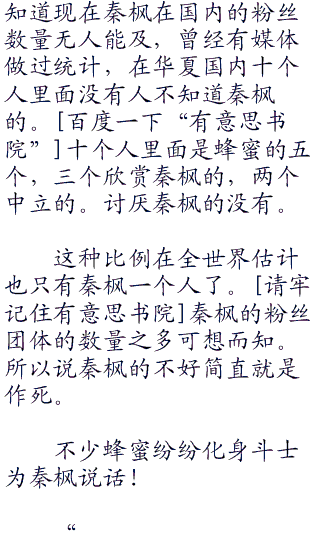 知道现在秦枫在国内的粉丝
数量无人能及，曾经有媒体
做过统计，在华夏国内十个
人里面没有人不知道秦枫
的。[百度一下“有意思书
院”]十个人里面是蜂蜜的五
个，三个欣赏秦枫的，两个
中立的。讨厌秦枫的没有。
这种比例在全世界估计
也只有秦枫一个人了。[请牢
记住有意思书院]秦枫的粉丝
团体的数量之多可想而知。
所以说秦枫的不好简直就是
作死。
不少蜂蜜纷纷化身斗士
为秦枫说话！
“